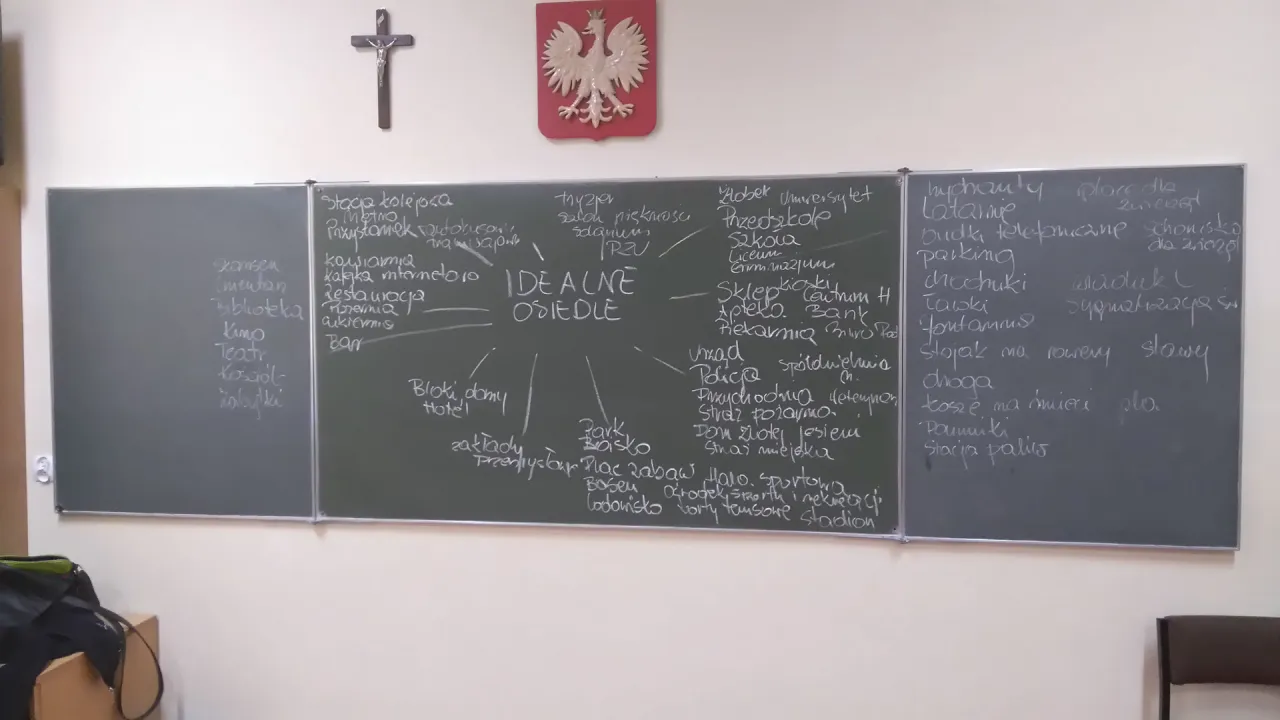 skansen
cmentarz
Biblioteka
Kino
Teatr
Kościół
Zabytki
Stacja kolejowa
Metro
Przystanek autobusowy
tramwajowy
kawiarnia
kafejka internetowa
Restauracja
Pizzernia
cukiernia
Bar
fryzjer
salon piękności
solarium
IDEALNE
OSIEDLE
Żłobek Uniwersytet
Przedszkole
Szkoła
Liceum
Gimnazjum
Sklep kioski Centrum H
Apteka Bank
Piekarnia Biuro
Urząd
Policja spółdzielnia
m.
Przychodnia
Straż pożarna
Dom złotej jesieni
Straż miejska
Bloki, domy
Hotel
zakłady
przemysłowe
Park
Boisko
Plac zabaw Hala sportowa
Basen Ośrodek sportu i rekreacji
Lodowisko korty tenisowe Stadion
hydranty
Latarnie
budki telefoniczne schronisko
dla zwierząt
parking
chodniki wiadukt
Ławki sygnalizacja
fontanna
stojak na rowery stawy
droga
kosze na śmieci
Pomniki
stacja paliw